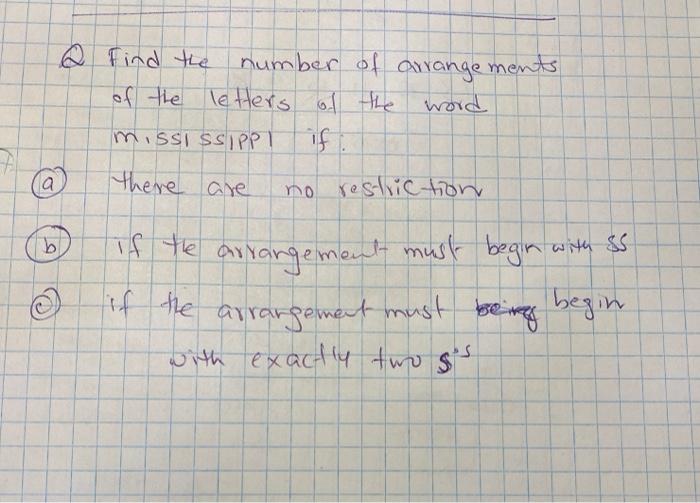 Q Find the number of arrangements
of the letters of the word
mississippi if:
(a) there are no restriction
(b) if the arrangement must begin with SS
(c) if the arrangement must begin
with exactly two S's